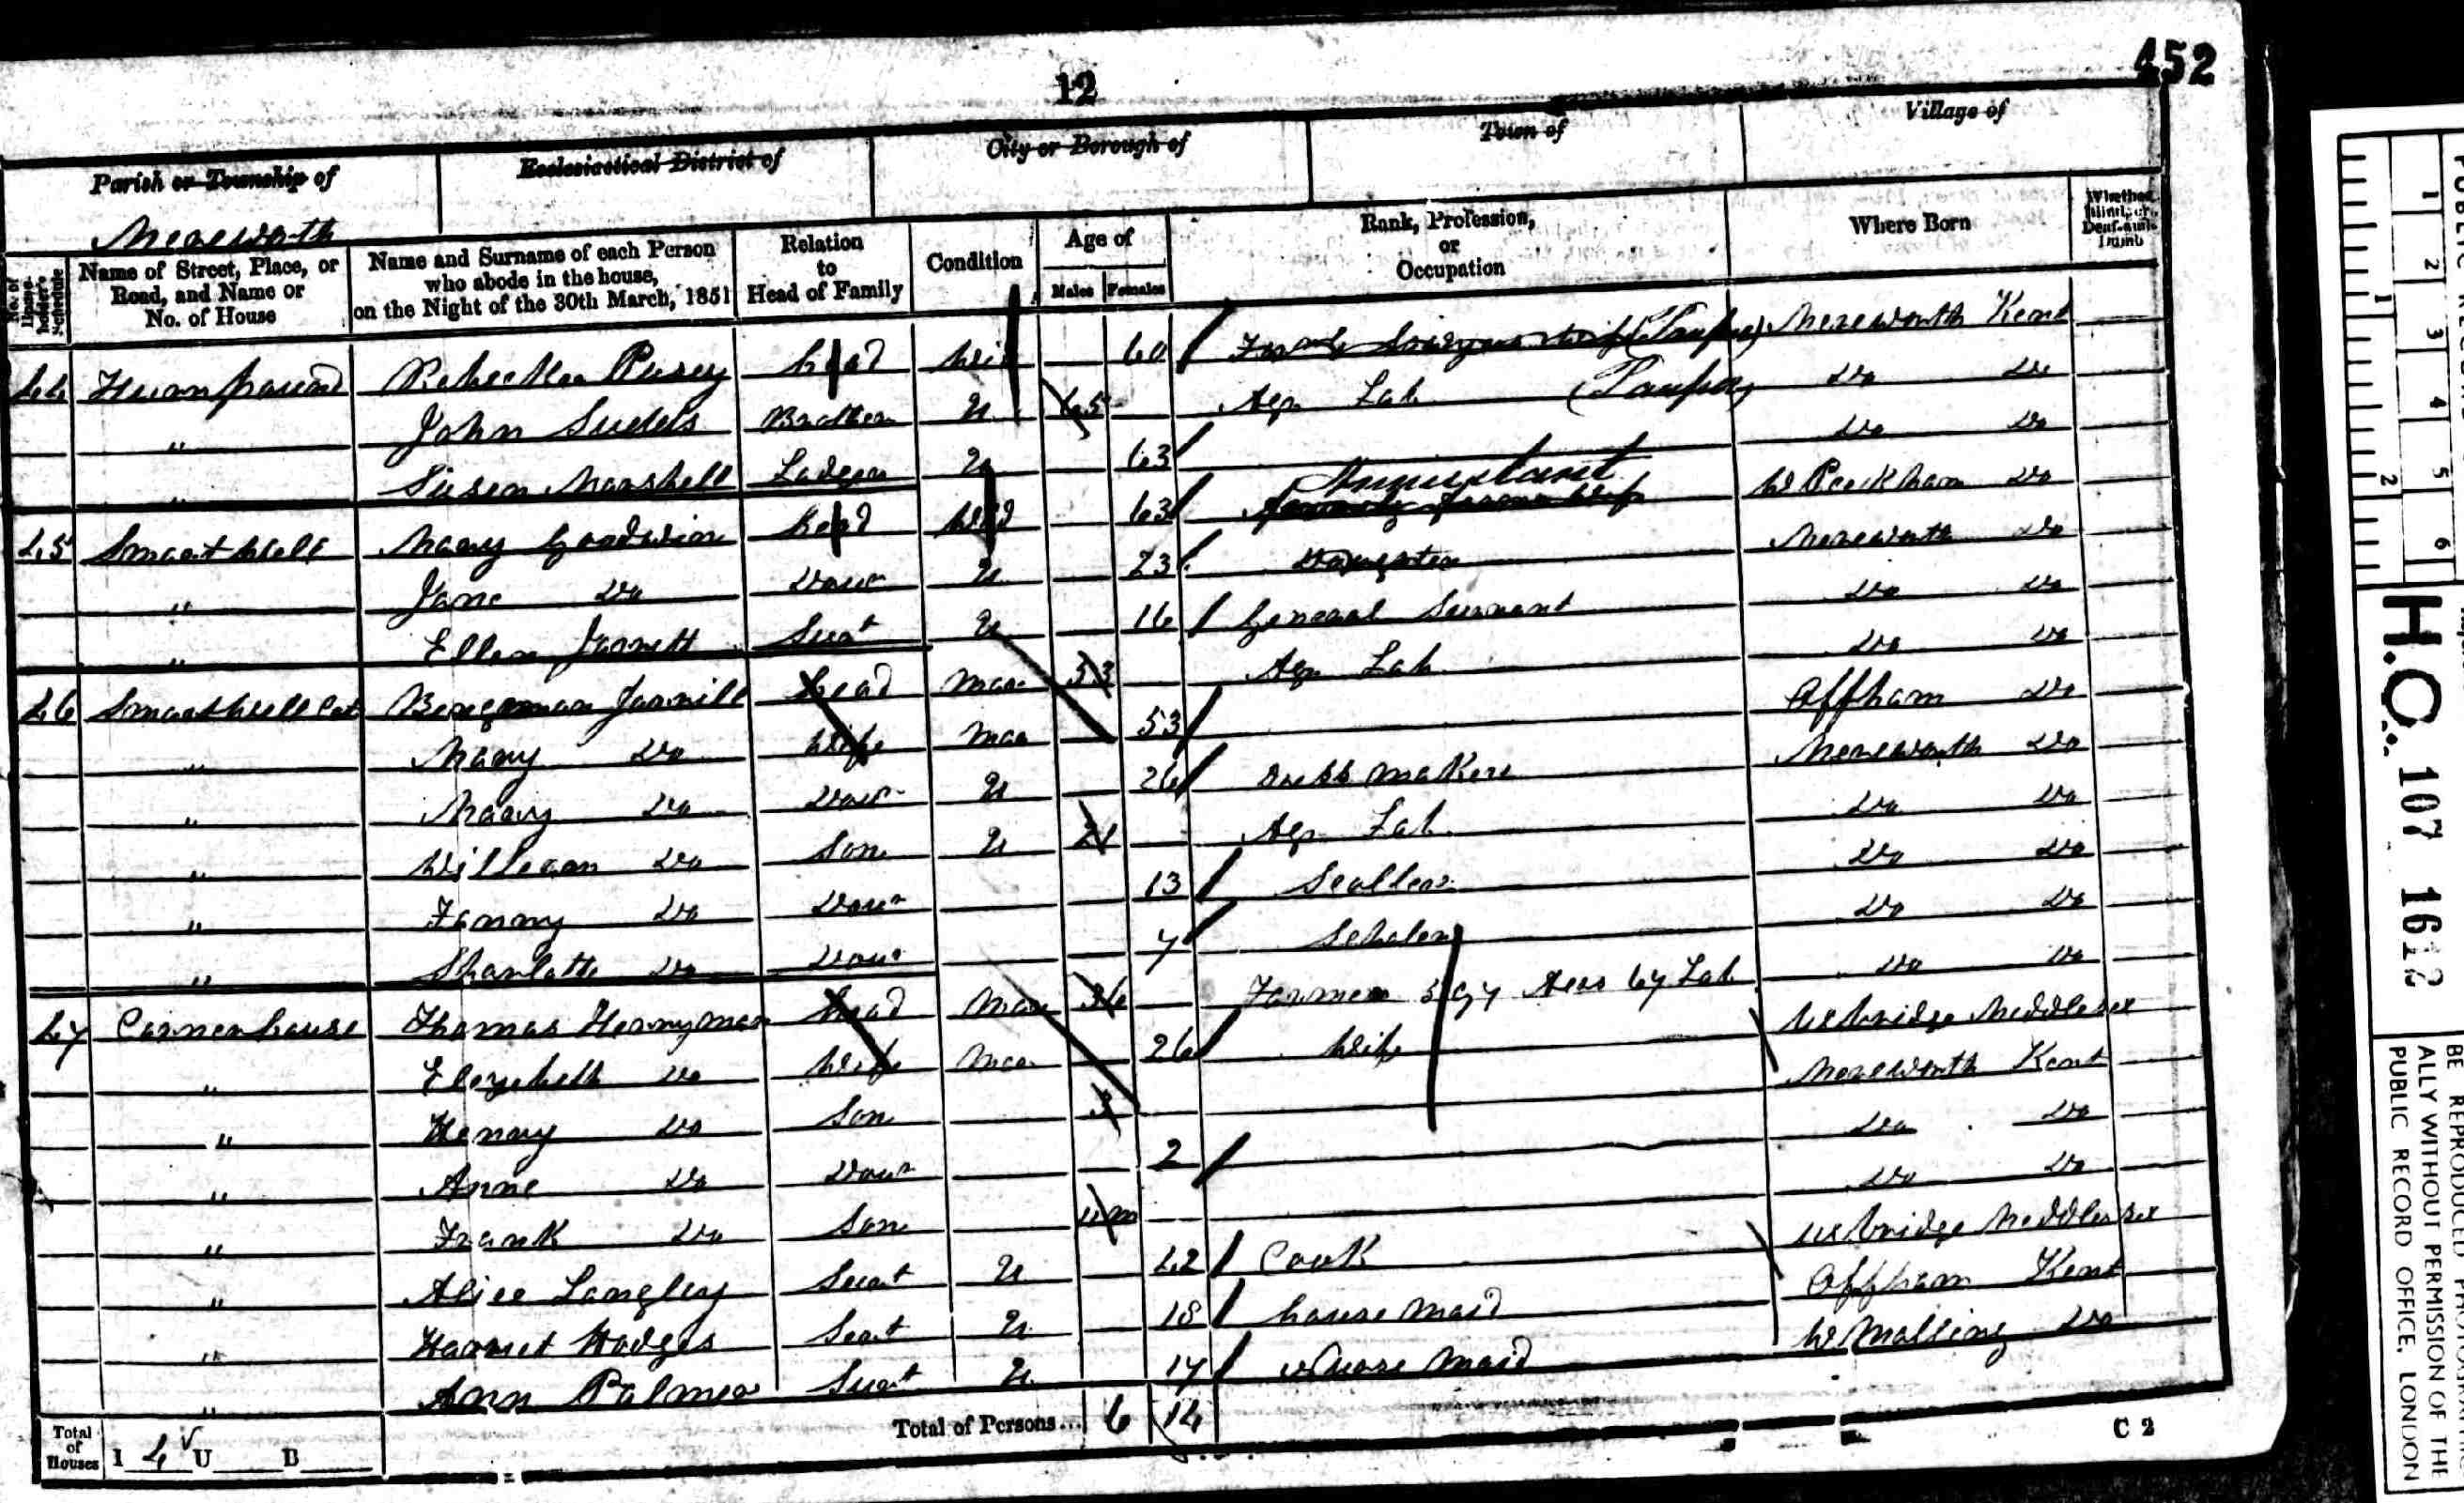 452
12
Parish or Township of
Ecclesiastical District of
City or Borough of
Town of
Village of
Mereworth
No. of House-holder's Schedule
Name of Street, Place, or Road, and Name or No. of House
Name and Surname of each Person who abode in the house, on the Night of the 30th March, 1851
Relation to Head of Family
Condition
Age of
Males
Females
Rank, Profession, or Occupation
Where Born
Whether Blind, or Deaf-and-Dumb
44 Rebecka Pusey head Wid 60 (Pauper) Mereworth Kent
" John Brother U 65 Ag Lab (Pauper) Do Do
" Susen Marshell Lodger U 63 Do Do
45 Smarts hill Mary Goodwin head Wid 63 Annuitant W Peckham Do
" Jane Do Daur U 23 Daughter Mereworth Do
" Ellen Jarrett Sert U 16 General Servant Do Do
46 Smarts hill Cot head Mar 53 Ag Lab Do Do
" Mary Do Wife Mar 53 Offham Do
" Mary Do Daur U 26 Dress maker Mereworth Do
" Willeam Do Son U 21 Ag Lab Do Do
" Fanny Do Daur 13 Do Do
" Sharlotte Do Daur 7 Scholer Do Do
47 Corner house Thomas Henry man head Mar 36 Farmer Lab Do Do
" Elezebeth Do Wife Mar 26 Wife Uxbridge Meddlesex
" Henry Do Son 3 Mereworth Kent
" Anne Do Daur 2 Do Do
" Frank Do Son 11m Do Do
" Alice Langley Sert U 42 Cook Uxbridge Meddlesex
" Harriet Hodges Sert U 18 house maid Offham Kent
" Ann Palmer Sert U 17 Nurse Maid W Malling Do
Total of Houses I 4 U B
Total of Persons... 6 14
C 2
H.O. 107 1612
ALLY WITHOUT PERMISSION OF THE
PUBLIC RECORD OFFICE, LONDON